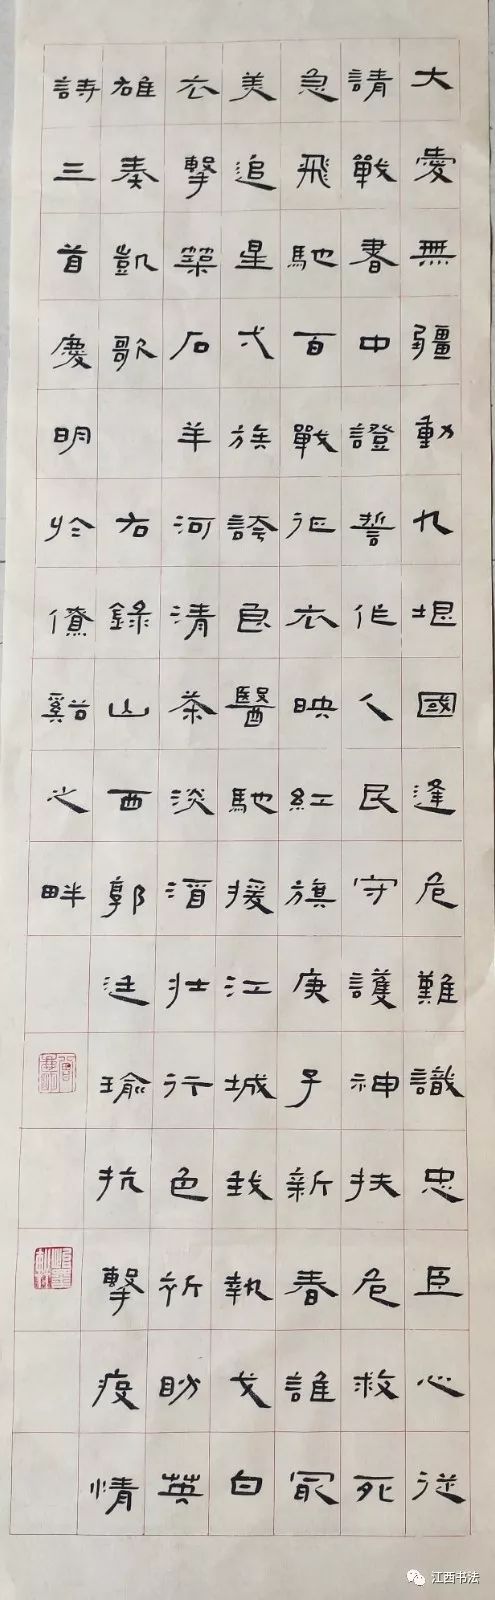 大愛無疆動九垠國逢危難識忠臣心從
請戰書中證誓作人民守護神扶危救死
急飛馳百戰征衣映紅旗庚子新春誰冣
美追星弌族誇良醫馳援江城我執戈白
衣擊築石羊河清茶淡酒壯行色祈盼英
雄奏凱歌 右錄山西郭廷瑜抗擊疫情
詩三首慶明於僚谿之畔
江西书法